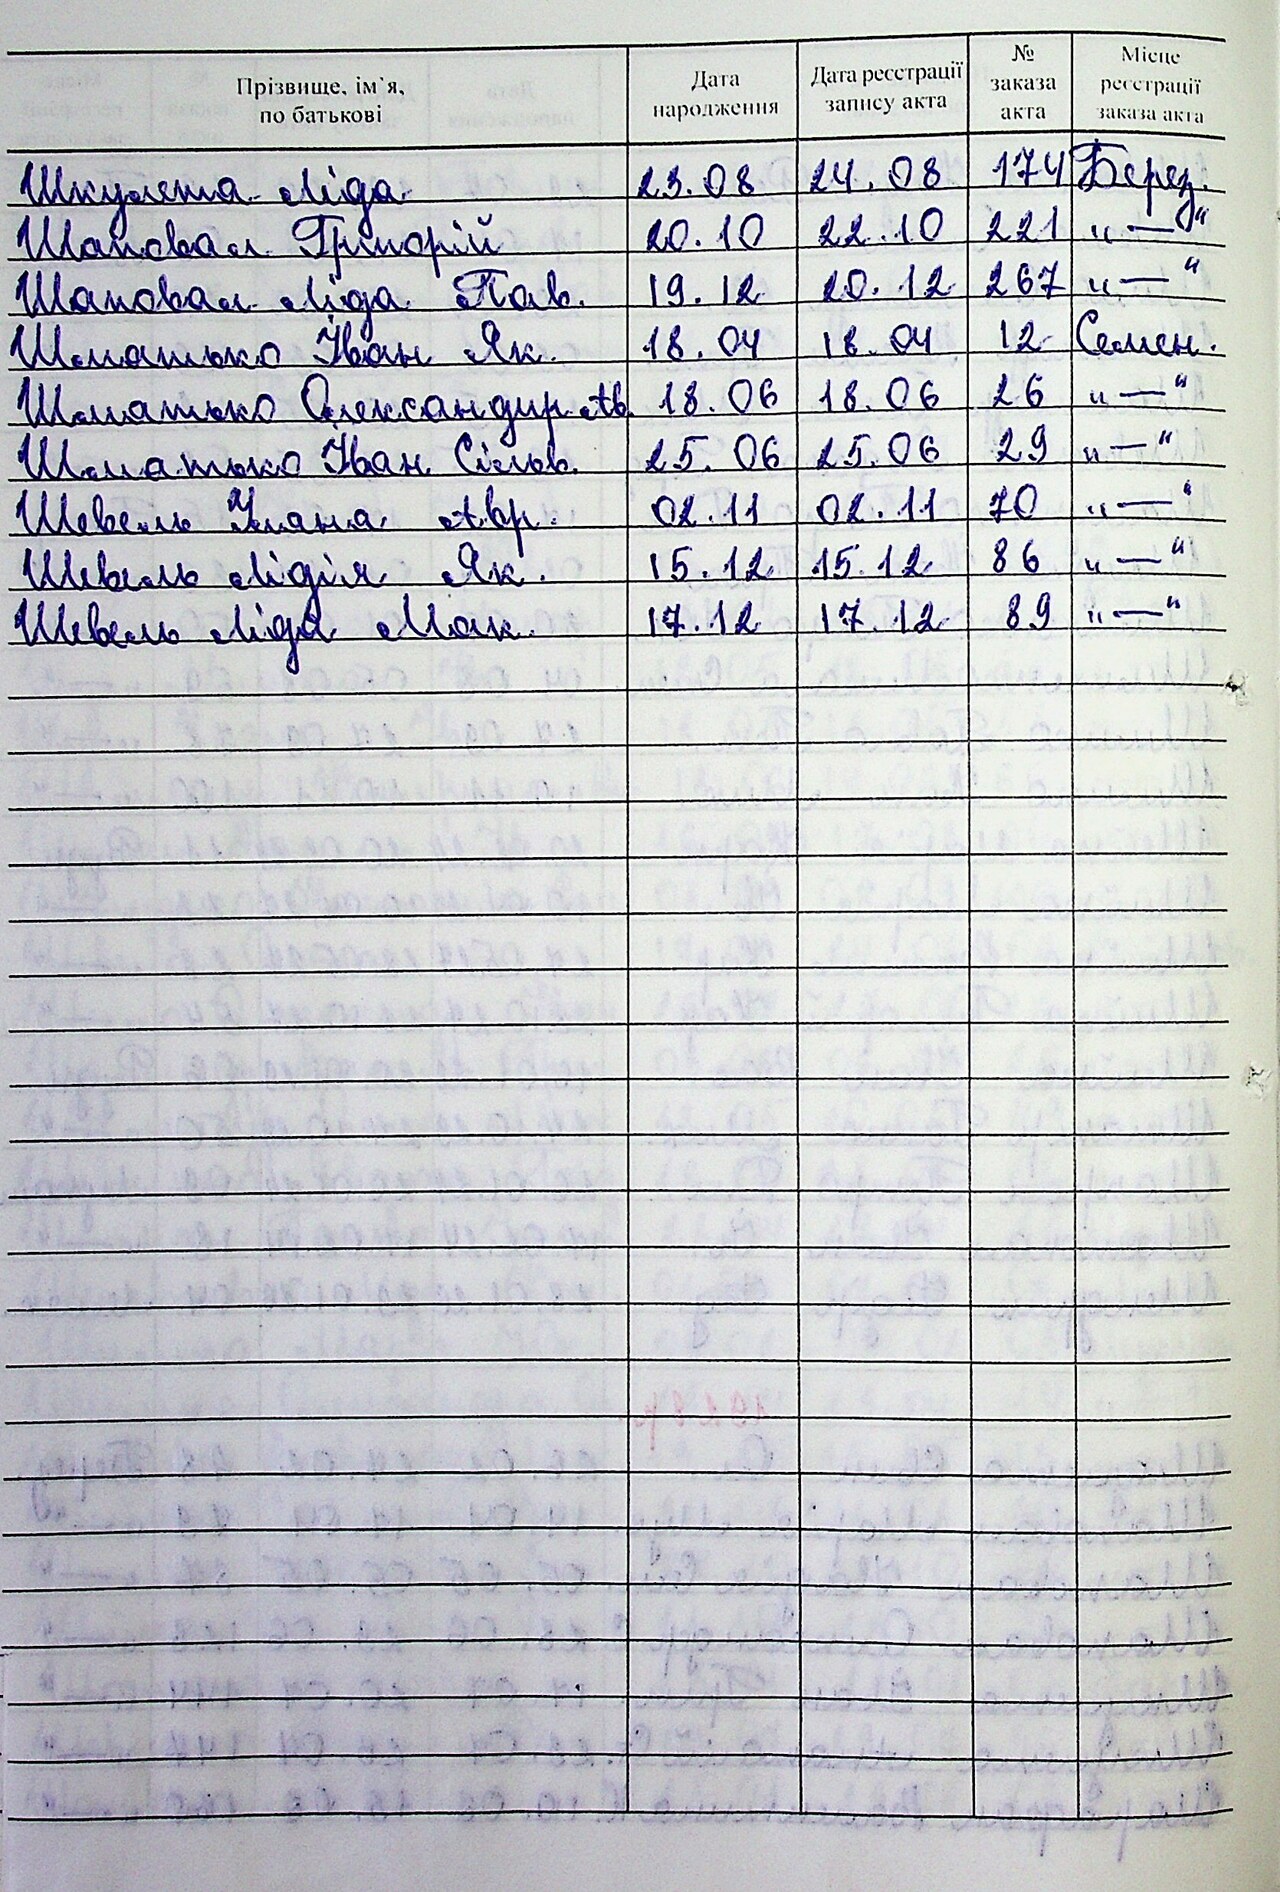 Прізвище, ім`я, по батькові | Дата народження | Дата реєстрації запису акта | № заказа акта | Місце реєстрації заказа акта
Шкулета Ліда 23.08 24.08 174 Берез.
Шаповал Григорій 20.10 22.10 221 „—“
Шаповал Ліда Пав. 19.12 20.12 267 „—“
Шматько Іван Як. 18.04 18.04 12 Семен.
Шматько Олександр Ав. 18.06 18.06 26 „—“
Шматько Іван Сільв. 25.06 25.06 29 „—“
Шевель Уляна Авр. 02.11 02.11 70 „—“
Шевель Лідія Як. 15.12 15.12 86 „—“
Шевель Ліда Мак. 17.12 17.12 89 „—“